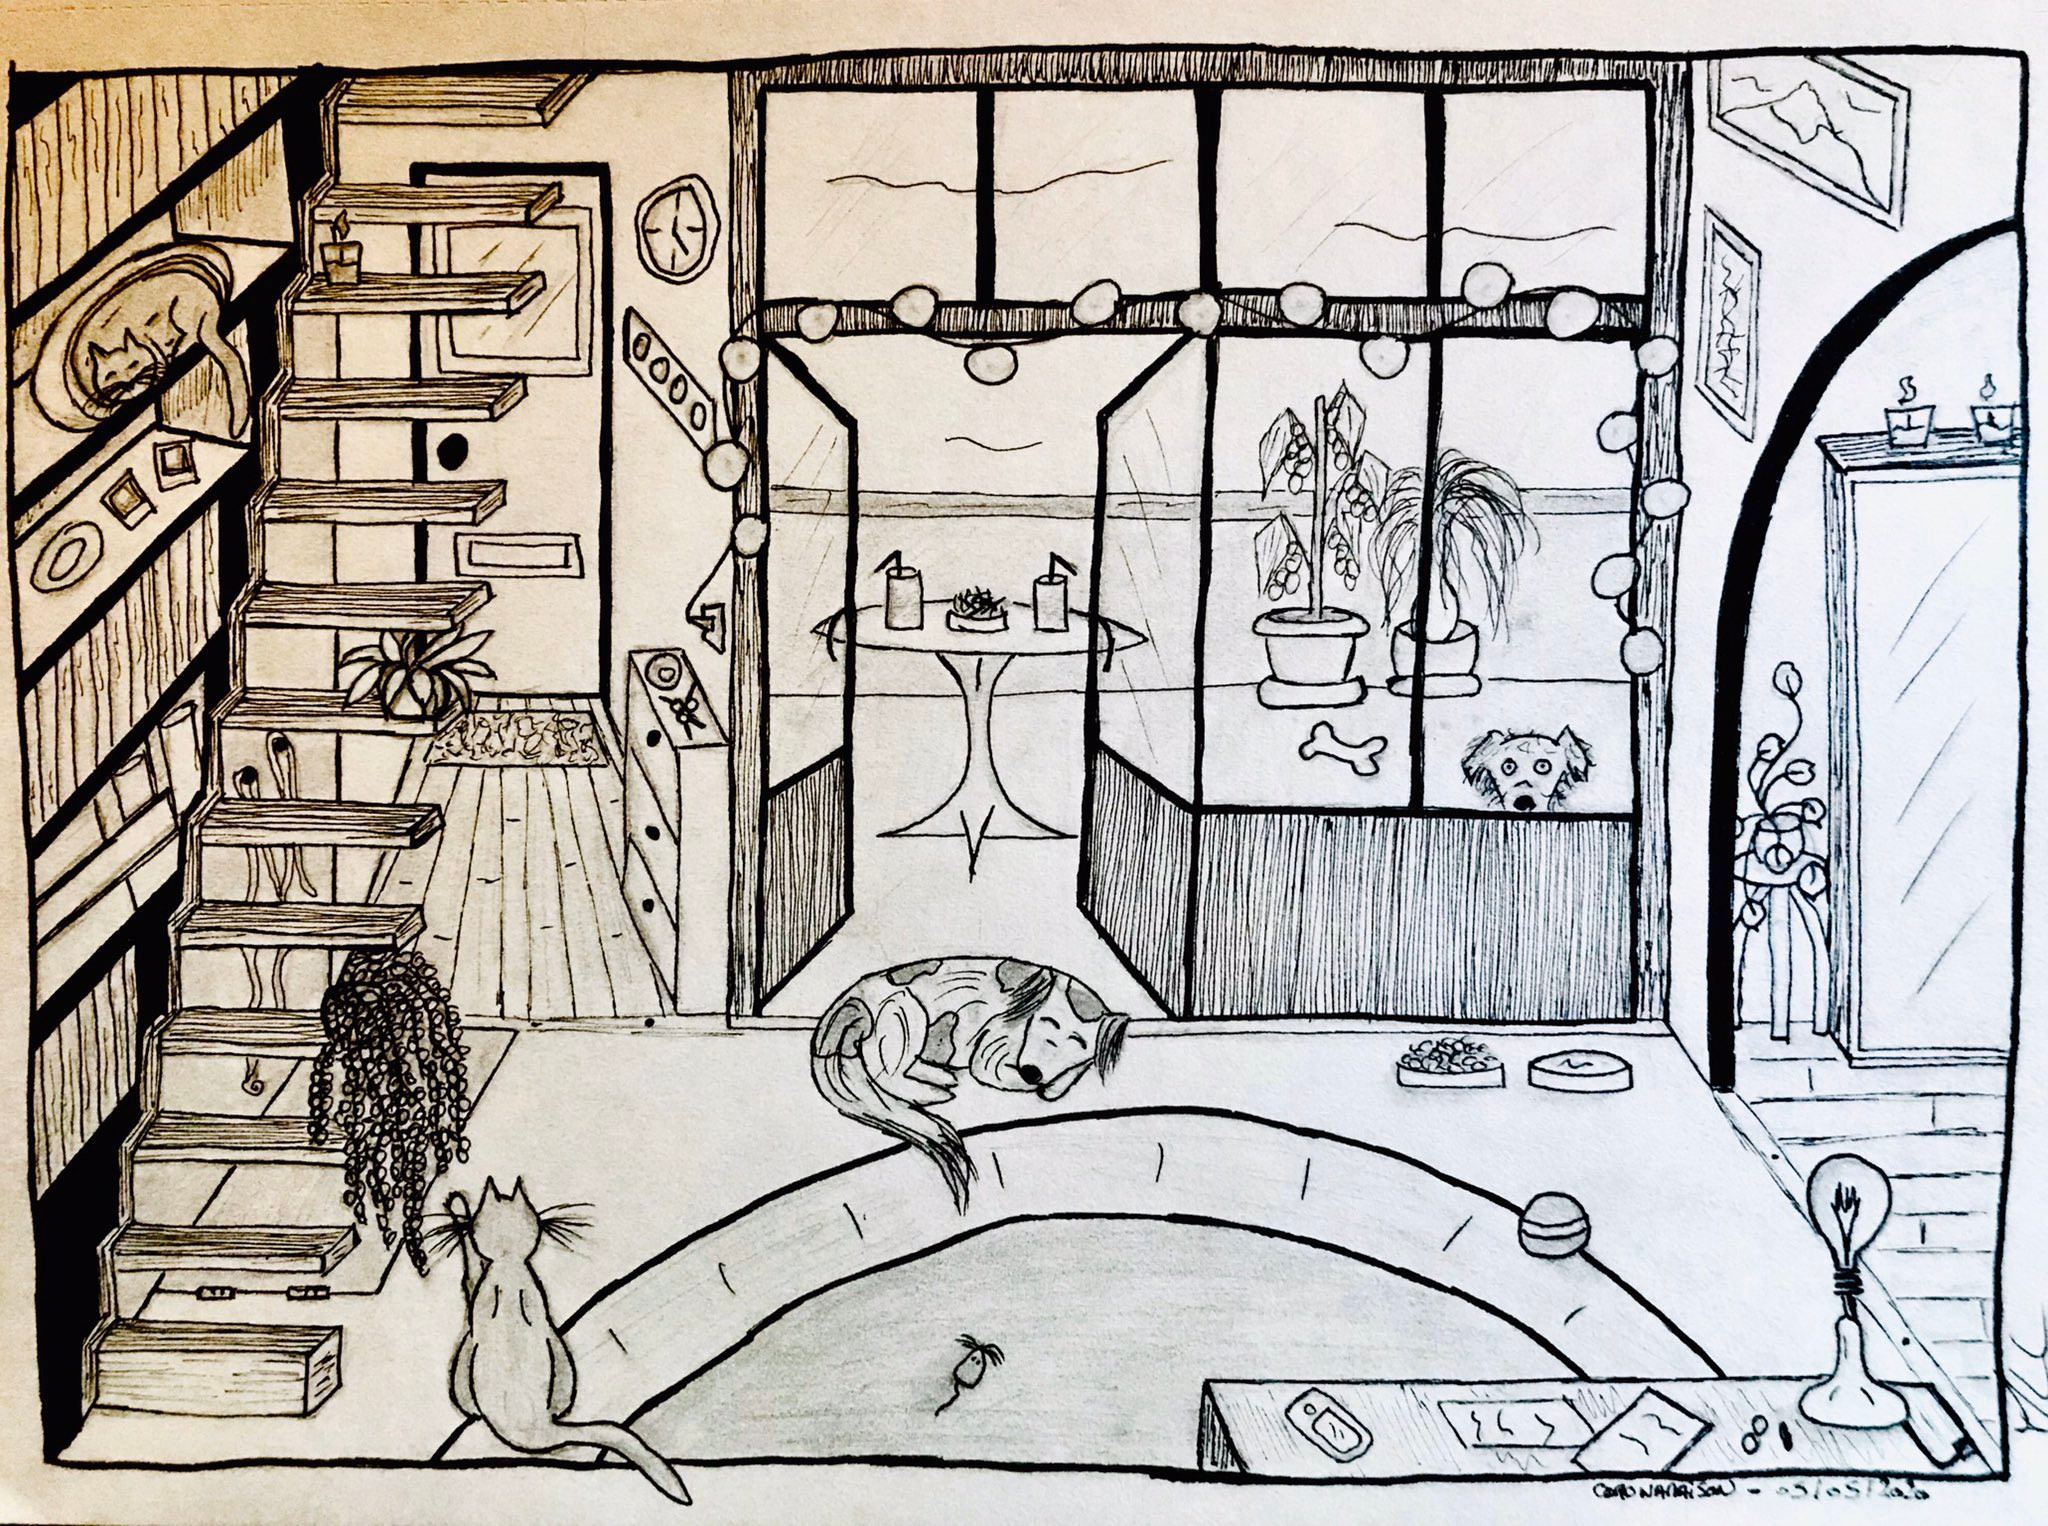 CORONAMAISON - 05/05/2020